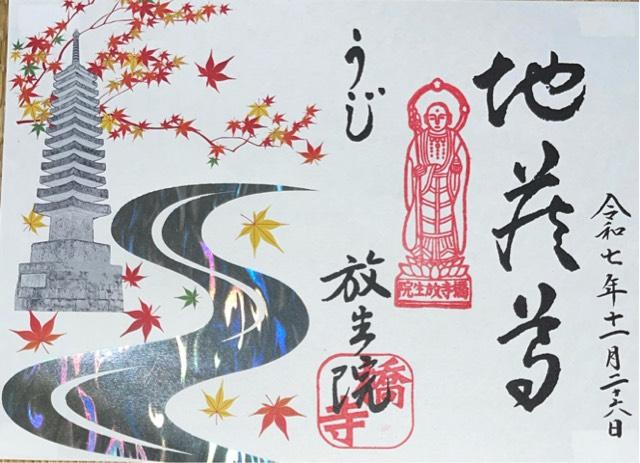 令和七年十一月二十六日
地蔵尊
橋寺放生院
うじ
放生院
橋寺